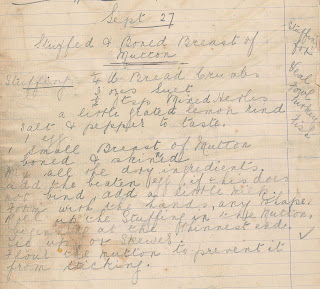 Sept 27
Stuffed & Boned Breast of
Mutton
Stuffing ¼ lb Bread Crumbs
2 ozs Suet
1 tsp Mixed Herbs
a little grated lemon rind
salt & pepper to taste.
1 egg
1 small Breast of Mutton
boned & skinned
Mix all the dry ingredients,
add the beaten egg, if this does
not bind add a little milk.
Form with the hands, any shape.
Put the stuffing in the Mutton,
beginning at the thinnest end.
Tie up or skewer.
Flour the mutton to prevent it
from
Stuffing
for
Veal
Fowl
Turkey
Fish